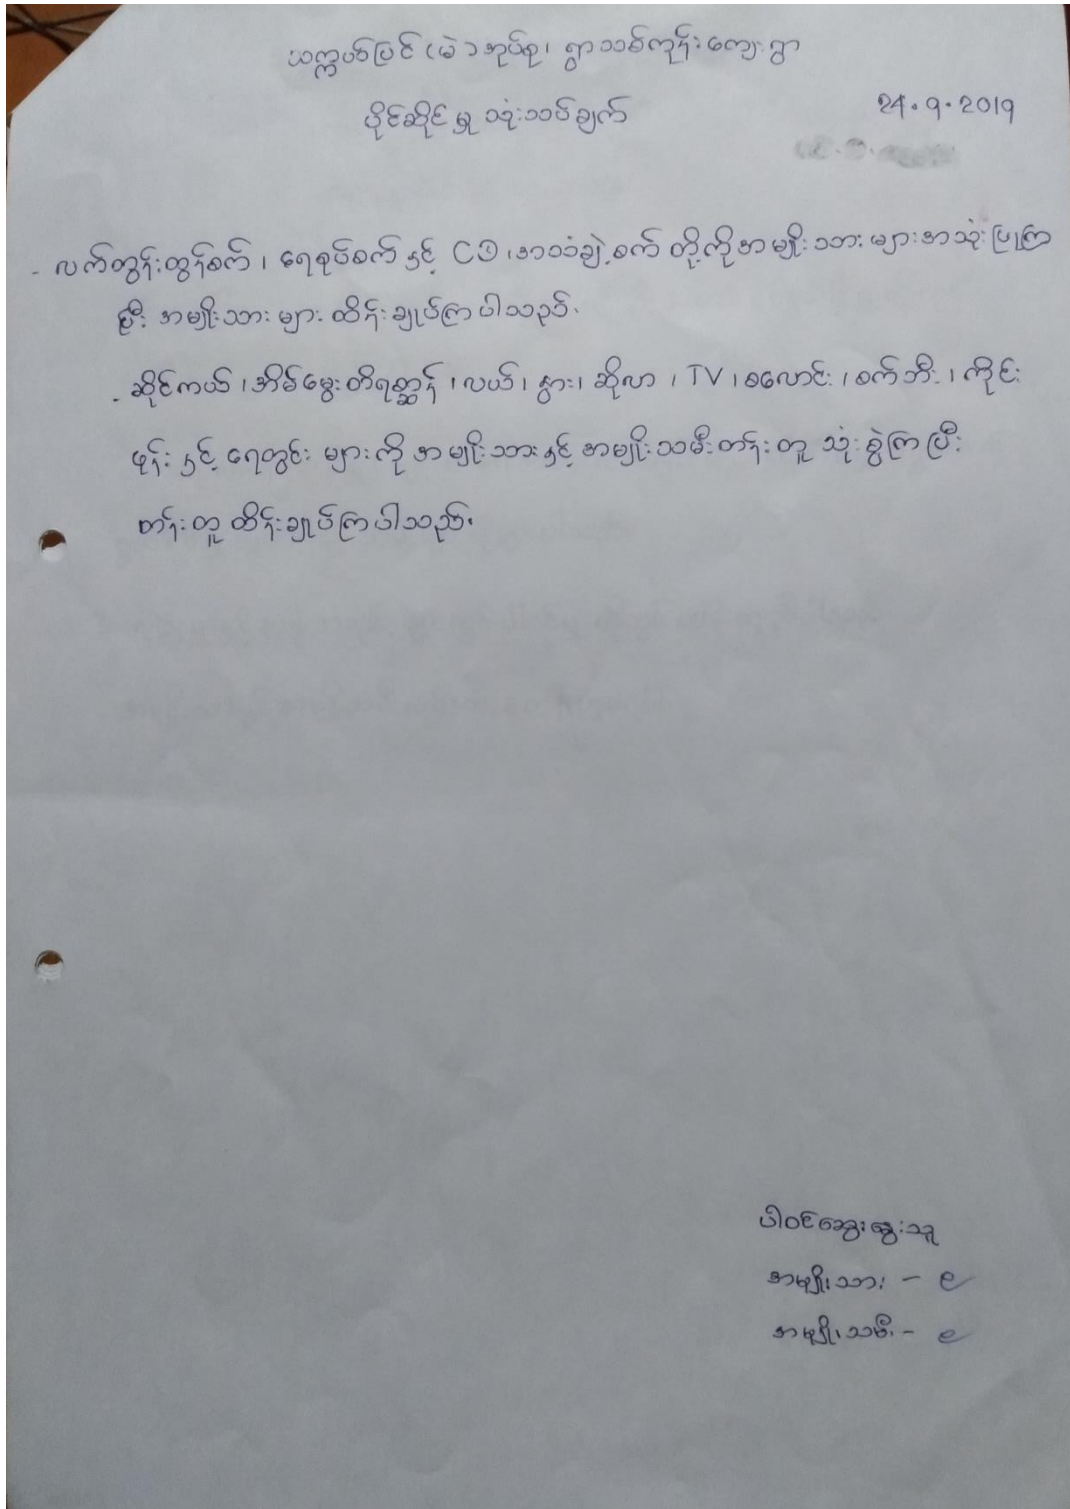 သက္ကယ်ပြင် (မဲ) အုပ်စု၊ ရွာသစ်ကုန်းကျေးရွာ
ပိုင်ဆိုင်မှု သုံးသပ်ချက်
24.9.2019
- လက်တွန်းထွန်စက်၊ ရေစုပ်စက်နှင့် CD ၊အသံချဲ့စက် တို့ကိုအမျိုးသားများအသုံးပြုကြ
ပြီး အမျိုးသားများ ထိန်းချုပ်ကြပါသည်။
- ဆိုင်ကယ်၊အိမ်မွေးတိရစ္ဆာန်၊လယ်၊နွား၊ဆိုလာ၊TV၊စလောင်း၊စက်ဘီး၊ကိုင်း
ဖုန်းနှင့် ရေတွင်းများကို အမျိုးသားနှင့် အမျိုးသမီးတန်းတူ သုံးစွဲကြပြီး
တန်းတူ ထိန်းချုပ်ကြပါသည်။
ပါဝင်ဆွေးနွေးသူ
အမျိုးသား - ၉
အမျိုးသမီး - ၉